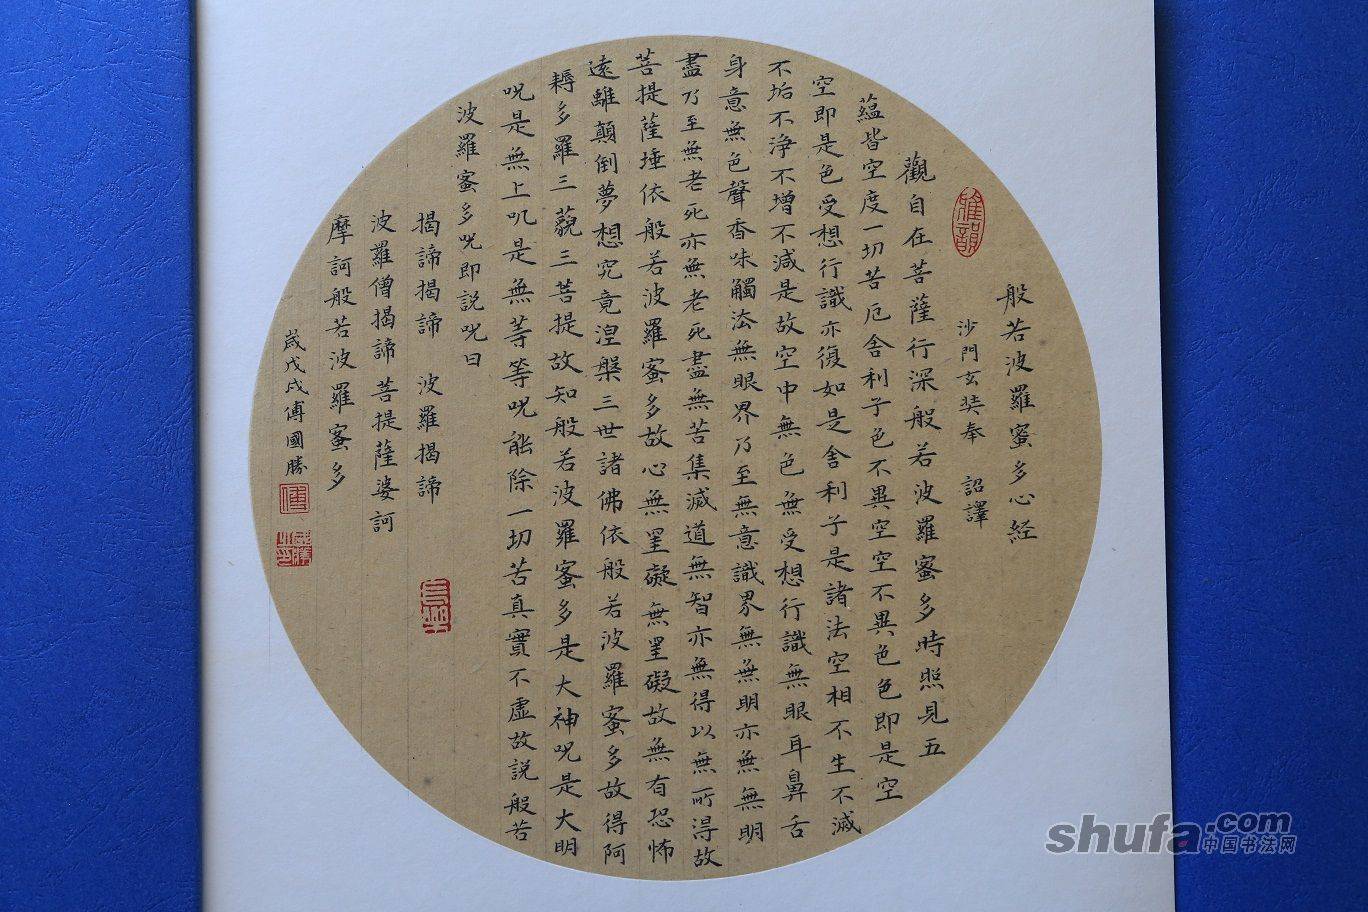 般若波羅蜜多心経
沙門玄奘奉 詔譯
觀自在菩薩行深般若波羅蜜多時照見五
蘊皆空度一切苦厄舍利子色不異空空不異色色即是空
空即是色受想行識亦復如是舍利子是諸法空相不生不滅
不垢不淨不增不減是故空中無色無受想行識無眼耳鼻舌
身意無色聲香味觸法無眼界乃至無意識界無無明亦無無明
盡乃至無老死亦無老死盡無苦集滅道無智亦無得以無所得故
菩提薩埵依般若波羅蜜多故心無罣礙無罣礙故無有恐怖
遠離顛倒夢想究竟涅槃三世諸佛依般若波羅蜜多故得阿
耨多羅三藐三菩提故知般若波羅蜜多是大神咒是大明
咒是無上咒是無等等咒能除一切苦真實不虛故說般若
波羅蜜多咒即説咒曰
揭諦揭諦 波羅揭諦
波羅僧揭諦菩提薩婆訶
摩訶般若波羅蜜多
歲戊戌傅國勝
雅韻
傅
國勝之印
長樂
shufa.com
中国书法网